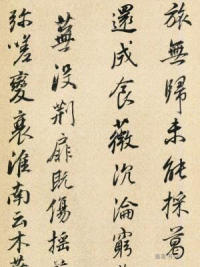 旅無歸未能採葛
還成食薇沉淪窮
蕪沒荆扉既傷搖
弥嗟變衰淮南云木葉